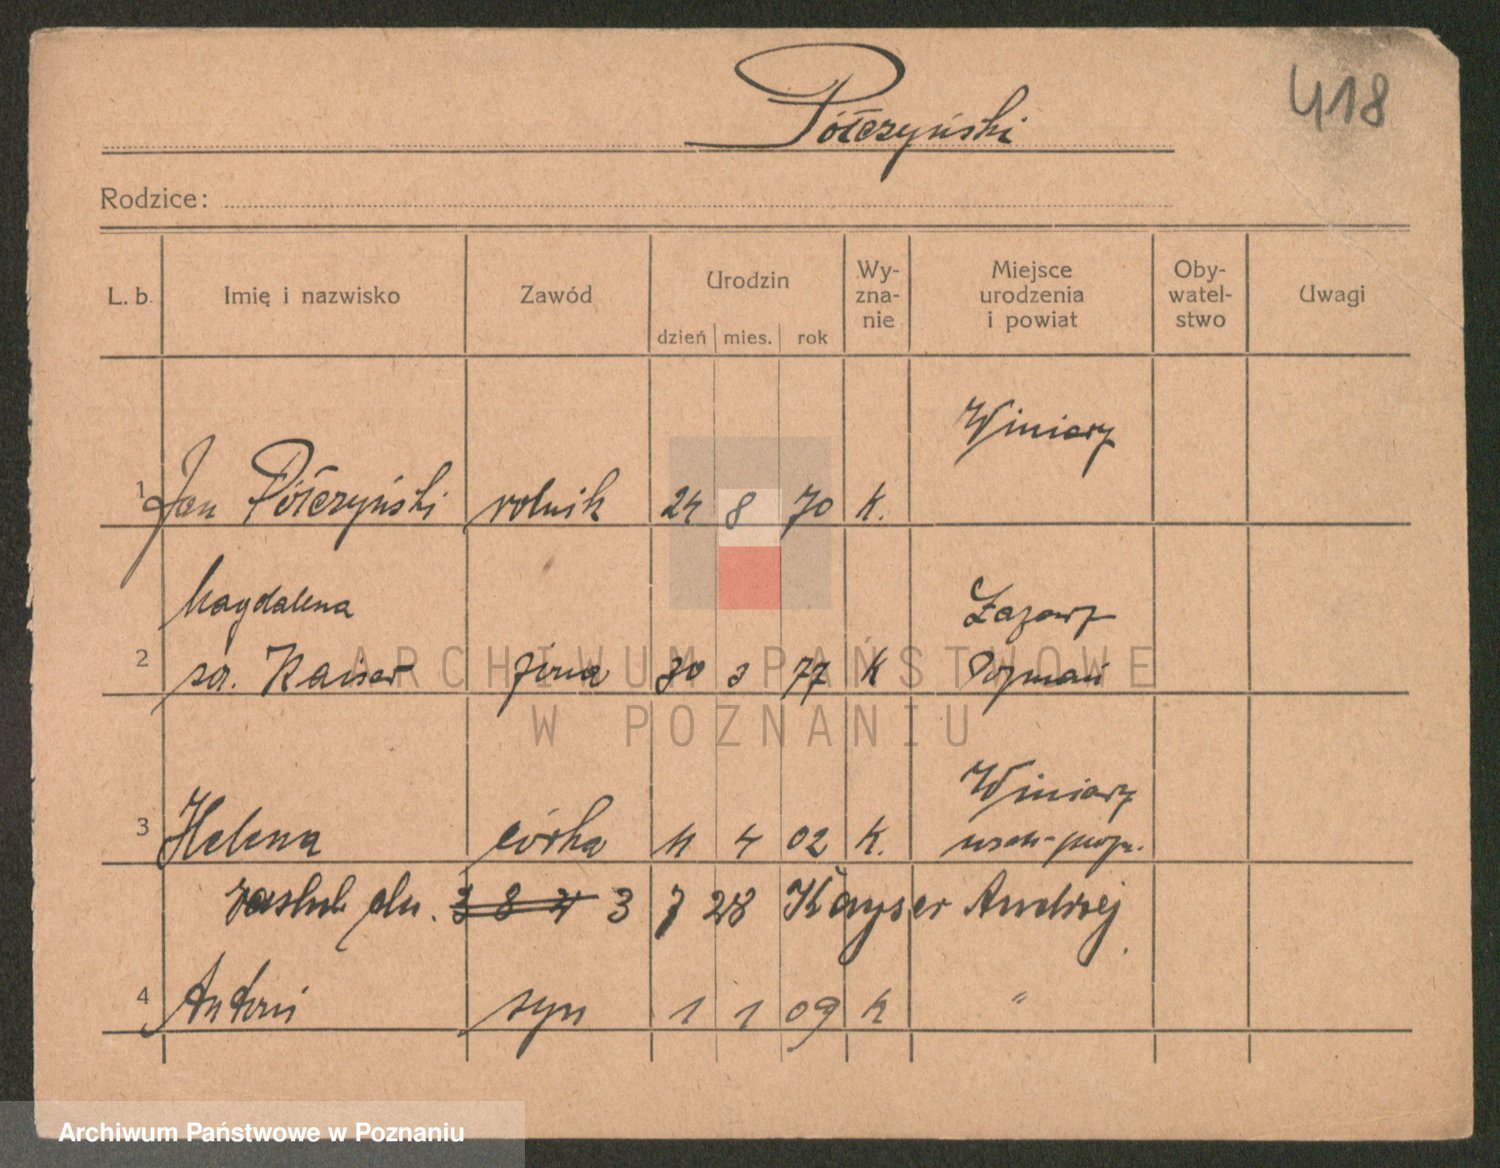 418
Półczyński
Rodzice:
L. b. Imię i nazwisko Zawód Urodzin dzień mies. rok Wy-zna-nie Miejsce urodzenia i powiat Oby-watel-stwo Uwagi
Winiary
1 Jan Półczyński rolnik 24 8 70 K.
Magdalena Łazarz
2 zd. Kaiser żona 30 3 77 K Poznań
ARCHIWUM PAŃSTWOWE
W POZNANIU
Winiary
3 Helena córka 11 4 02 K.
zaślub. dn. 3 8 24 3 7 28 Kayser Andrzej
4 Antoni syn 1 1 09 K "
Archiwum Państwowe w Poznaniu